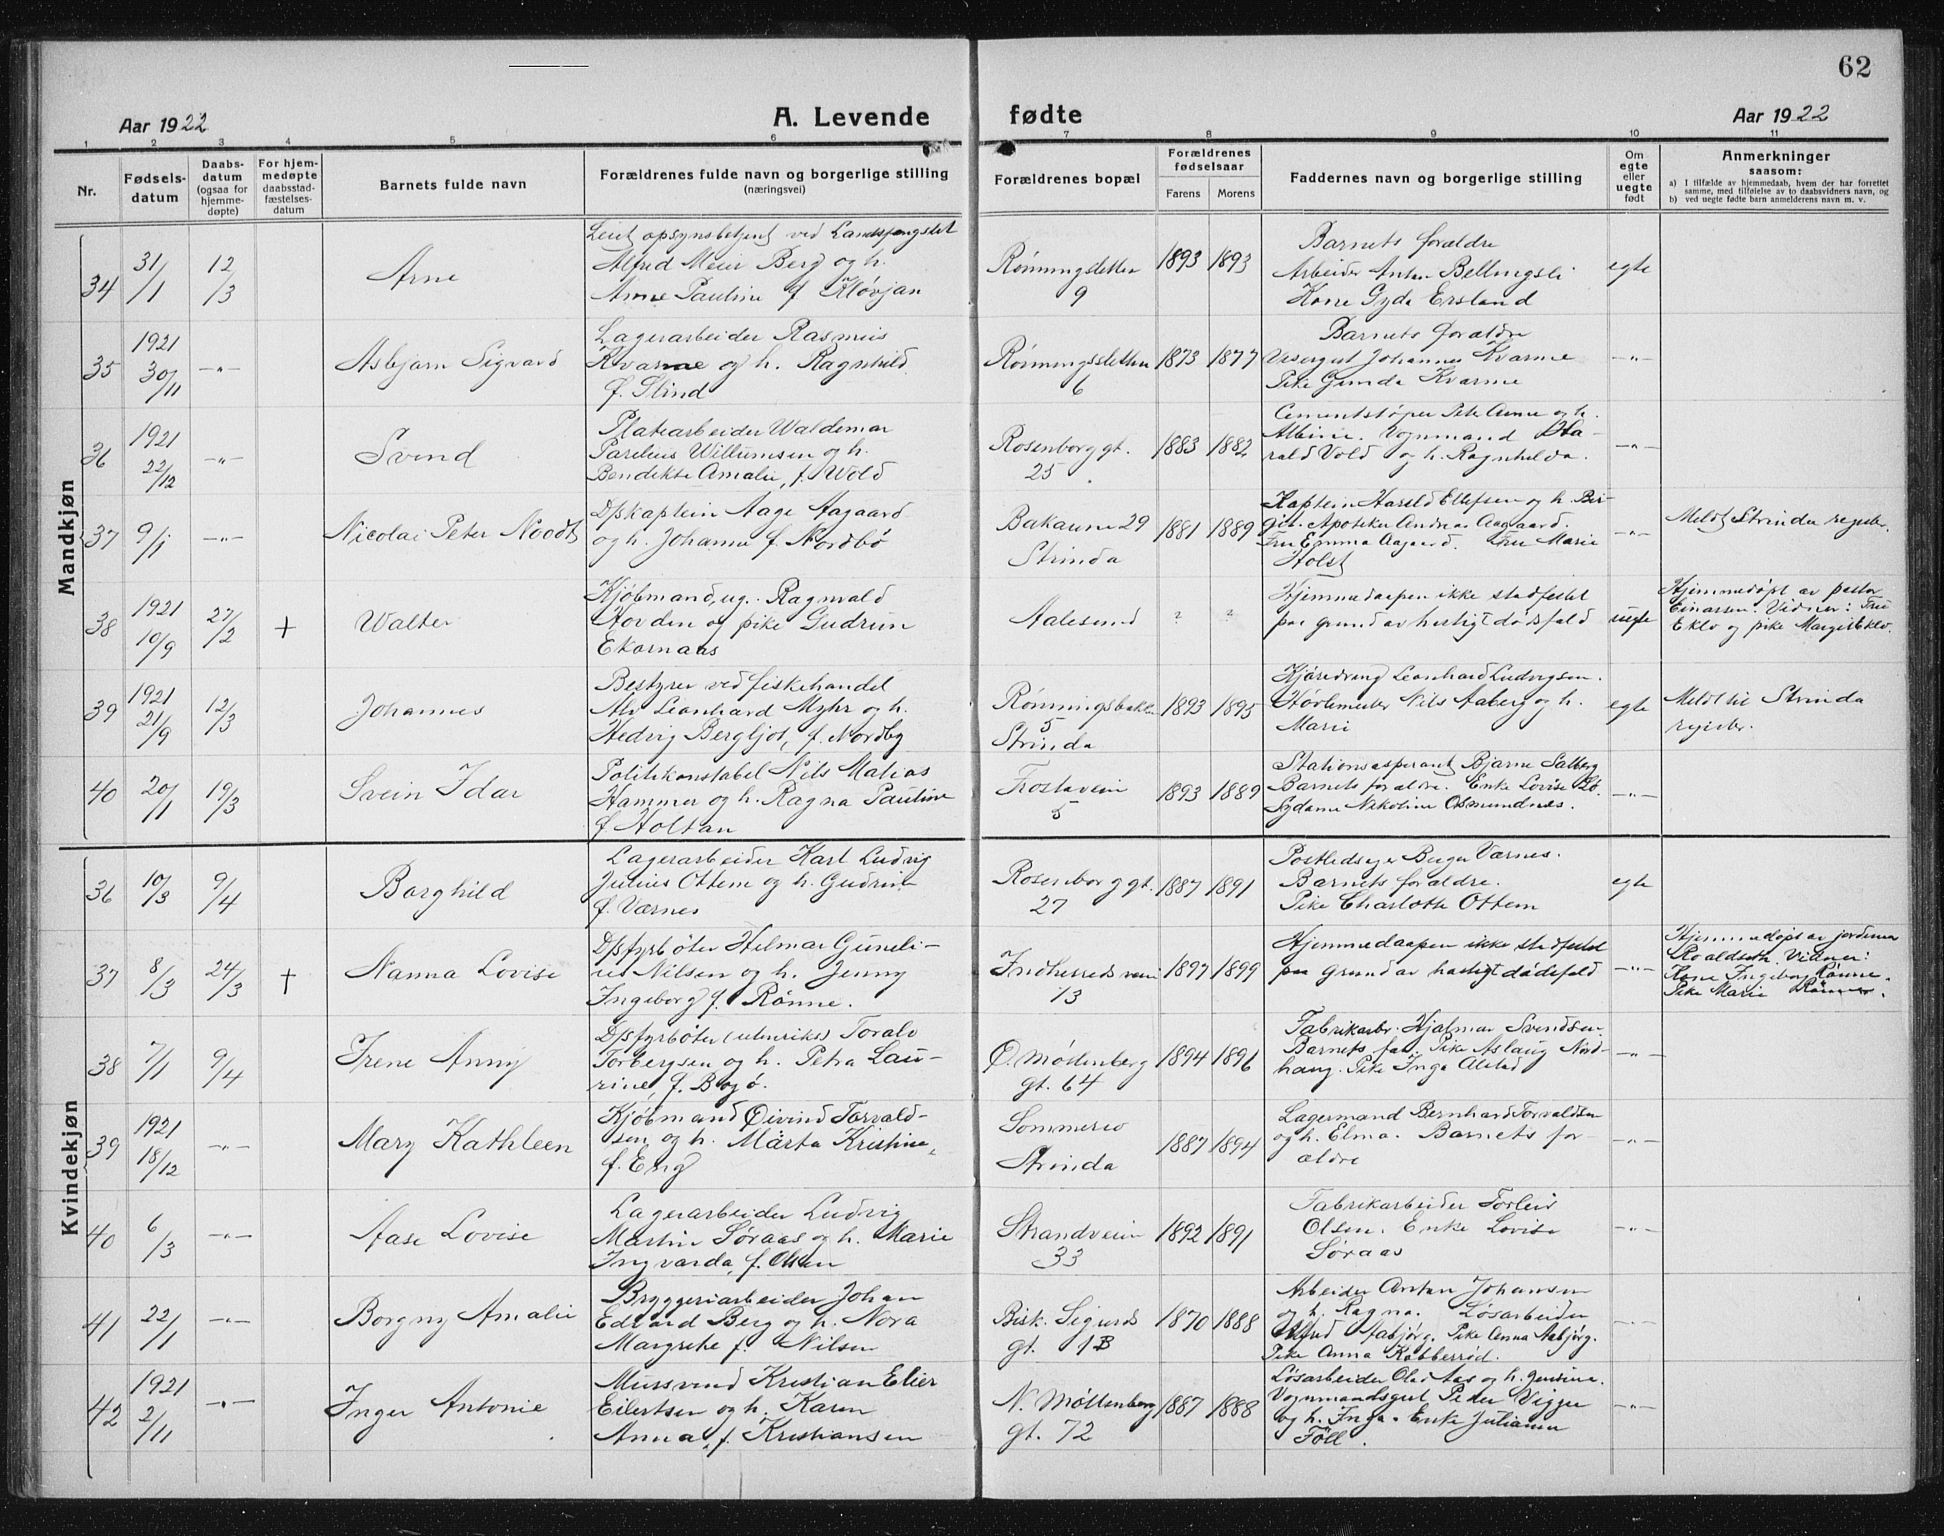 62
Aar 1922
A. Levende fødte
Aar 1922
1 2 3 4 5 6 7 8 9 10 11
Nr.
Fødselsdatum
Daabsdatum (ogsaa for hjemmedøpte)
For hjemmedøpte daabsstadfæstelsesdatum
Barnets fulde navn
Forældrenes fulde navn og borgerlige stilling (næringsvei)
Forældrenes bopæl
Forældrenes fødselsaar
Farens Morens
Faddernes navn og borgerlige stilling
Om egte eller uegte født
Anmerkninger saasom:
a) I tilfælde av hjemmedaab, hvem der har forrettet samme, med tilføielse av to daabsvidners navn, og
b) ved uegte fødte barn anmelderens navn m. v.
Mandkjøn
34 31/1 12/3
Arne
opsynsbetjent ved Landsfengslet
Alfred Meier Berg og h.
Anne Pauline f. Kløvjan
Rønningsletten
9
1893 1893
Barnets forældre
Arbeider Anton Bellingsli
Kone Gyda Ersland
egte
35 1921 30/11 -"-
Asbjørn Sigvard
Lagerarbeider Rasmus
Kvarme og h. Ragnhild
f. Slind
Rønningsletten
6
1873 1877
Barnets forældre
Visergut Johannes Kvarme
Pike Gunda Kvarme
-"-
36 1921 22/12 -"-
Svend
Platearbeider Waldemar
Parelius Willumsen og h.
Bendikte Amalie, f. Wold
Rosenborg gt.
25
1883 1882
Cementstøper Petr Aune og h.
Albine. Vognmand Ha-
rald Vold og h. Ragnhilda.
-"-
37 9/1 -"-
Nicolai Peter Noodt
D/skaptein Aage Aagaard
og h. Johanne f. Nordbø
Bakaune 29
Strinda
1881 1889
Kaptein Harald Ellefsen og h. Bir-
git. Apoteker Andreas Aagaard.
Fru Emma Aagaard. Fru Marie
Holst
-"-
Meldt Strinda register.
38 1921 10/9 27/2 +
Walter
Kjøbmand, ug. Ragnvald
Hovden og pike Gudrun
Ekornaas
Aalesund
? ?
Hjemmedaapen ikke stadfestet
paa grund av hastigt dødsfald
uegte
Hjemmedøpt av pastor
Einarsen. Vidner: Fru
Eklo og pike Margit Eklo.
39 1921 21/9 12/3
Johannes
Bestyrer ved fiskehandel
Alv Leonhard Myhr og h.
Hedvig Bergljot, f. Nordby
Rønningsbakken
5
Strinda
1893 1895
Kjøredreng Leonhard Ludvigsen.
Størlemester Nils Aaberg og h.
Marie
egte
Meldt til Strinda
register.
40 20/1 19/3
Svein Idar
Politikonstabel Nils Matias
Hammer og h. Ragna Pauline
f. Holtan
Frostaveien
5
1893 1889
Stationsaspirant Bjarne Salberg
Barnets forældre. Enke Lovise Lø.
Sydame Nikoline Osmundnes.
-"-
Kvindekjøn
36 10/3 9/4
Borghild
Lagerarbeider Karl Ludvig
Julius Ottem og h. Gudrun
f. Værnes
Rosenborg gt.
27
1887 1891
Postledsager Birger Værnes.
Barnets forældre.
Pike Charlotte Ottem
egte
37 8/3 24/3 +
Nanna Lovise
D/sfyrbøter Hilmar Guneli-
us Nilsen og h. Jenny
Ingeborg f. Rønne.
Indherredsveien
13
1897 1899
Hjemmedaapen ikke stadfestet
paa grund av hastigt dødsfald
-"-
Hjemmedøpt av jordemor
Roaldseth. Vidner:
Kone Ingeborg Rønne.
Pike Marie Rønne.
38 7/1 9/4
Irene Anny
D/sfyrbøter (utenriks) Toralv
Torbergsen og h. Petra Lau-
rine, f. Bogø.
Ø. Møllenberg
gt. 64
1894 1896
Fabrikarbr. Hjalmar Svendsen.
Barnets far. Pike Aslaug Nord-
haug. Pike Inga Alstad
-"-
39 1921 18/12 -"-
Mary Kathleen
Kjøbmand Øivind Torvald-
sen og h. Märta Kristine,
f. Eng
Sommerro
Strinda
1887 1894
Lagermand Bernhard Torvaldsen
og h. Elma. Barnets for-
ældre
-"-
40 6/3 -"-
Aase Lovise
Lagerarbeider Ludvig
Martin Søraas og h. Marie
Ingvarda, f. Olsen
Strandveien
33
1892 1891
Fabrikarbeider Torleiv
Olsen. Enke Lovise
Søraas
-"-
41 22/1 -"-
Borgny Amalie
Bryggeriarbeider Johan
Edvard Berg og h. Nora
Margrete f. Nilsen
Bisk. Sigurds
gt. 1B
1870 1888
Arbeider Anton Johansen
og h. Ragna. Løsarbeider
Alfred Aabjørg. Pike Anna Aabjørg.
Pike Anna Kobberrød.
-"-
42 1921 2/11 -"-
Inger Antonie
Mursvend Kristian Elier
Eilertsen og h. Karen
Anna, f. Kristiansen
N. Møllenberg
gt. 72
1887 1888
Løsarbeider Olaf Aas og h. Jensine.
Vognmandsgut Peder Vigge
og h. Inga. Enke Julianna
Föll.
-"-